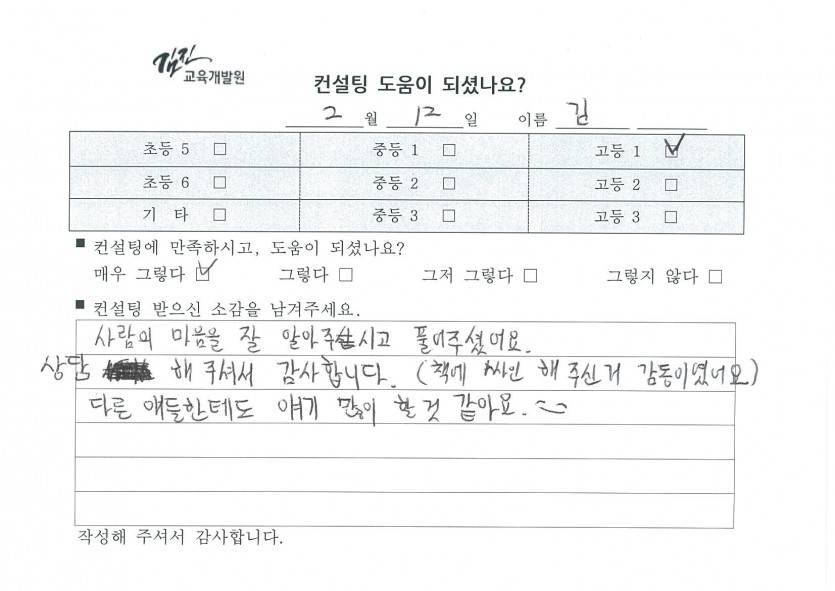 김진
교육개발원
컨설팅 도움이 되셨나요?
2 월 12 일 이름 김
초등 5 □ 중등 1 □ 고등 1 ☑
초등 6 □ 중등 2 □ 고등 2 □
기 타 □ 중등 3 □ 고등 3 □
■ 컨설팅에 만족하시고, 도움이 되셨나요?
매우 그렇다 ☑ 그렇다 □ 그저 그렇다 □ 그렇지 않다 □
■ 컨설팅 받으신 소감을 남겨주세요.
사람의 마음을 잘 알아주시고 풀어주셨어요.
상담 해 주셔서 감사합니다. (책에 싸인 해 주신거 감동이였어요)
다른 얘들한테도 얘기 많이 할것 같아요.
작성해 주셔서 감사합니다.